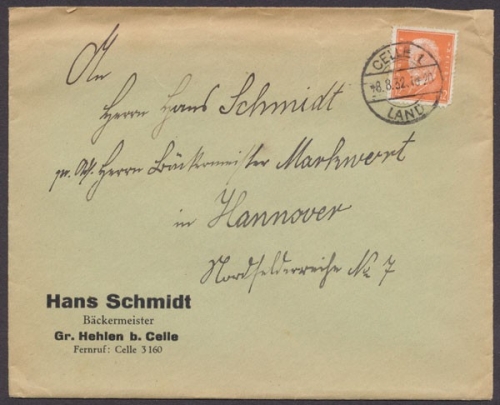 CELLE 1
8.8.32.
LAND
An
Herrn Hans Schmidt
pr. Adr. Herrn Bäckermeister Markwort
in Hannover
Nordfelderreihe No 7
Hans Schmidt
Bäckermeister
Gr. Hehlen b. Celle
Fernruf: Celle 3160